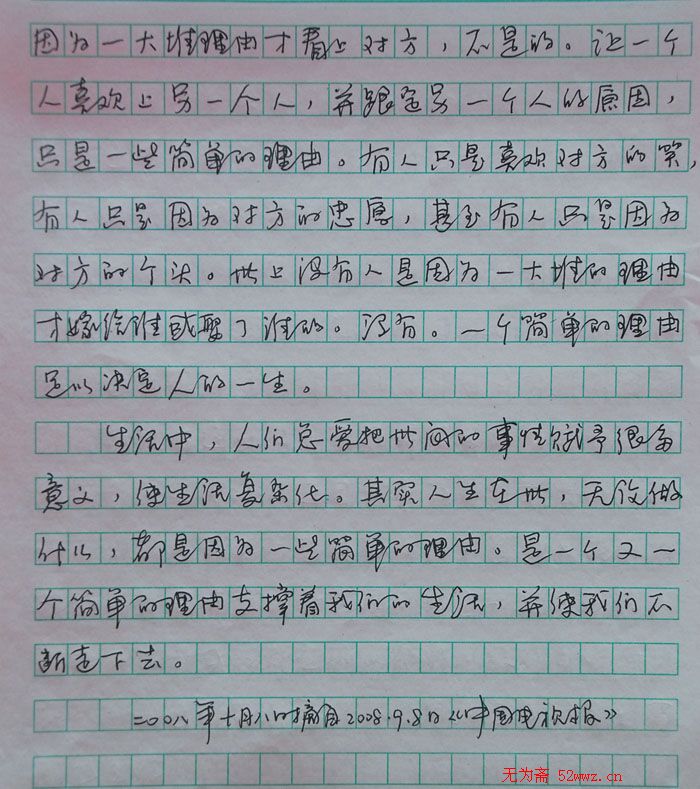 因为一大堆理由才看上对方，不是的。让一个
人喜欢上另一个人，并跟定另一个人的原因，
只是一些简单的理由。有人只是喜欢对方的笑，
有人只是因为对方的忠厚，甚至有人只是因为
对方的个头。世上没有人是因为一大堆的理由
才嫁给谁或娶了谁的。没有。一个简单的理由
足以决定人的一生。
生活中，人们总爱把世间的事情赋予很多
意义，使生活复杂化。其实人生在世，无论做
什么，都是因为一些简单的理由。是一个又一
个简单的理由支撑着我们的生活，并使我们不
断走下去。
二〇〇八年十月八日摘自2008.9.8日《中国电视报》
无为斋 52wwz.cn